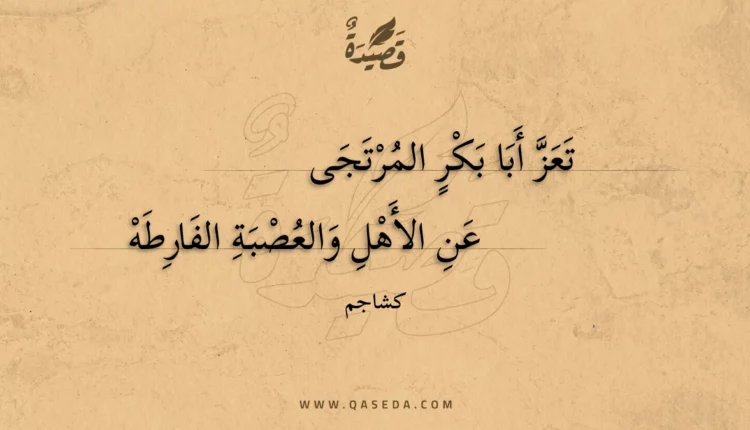 قَصِيدَةٌ
تَعَزَّ أَبَا بَكْرٍ المُرْتَجَى
عَنِ الأَهْلِ وَالعُصْبَةِ الفَارِطَهْ
كشاجم
WWW.QASEDA.COM